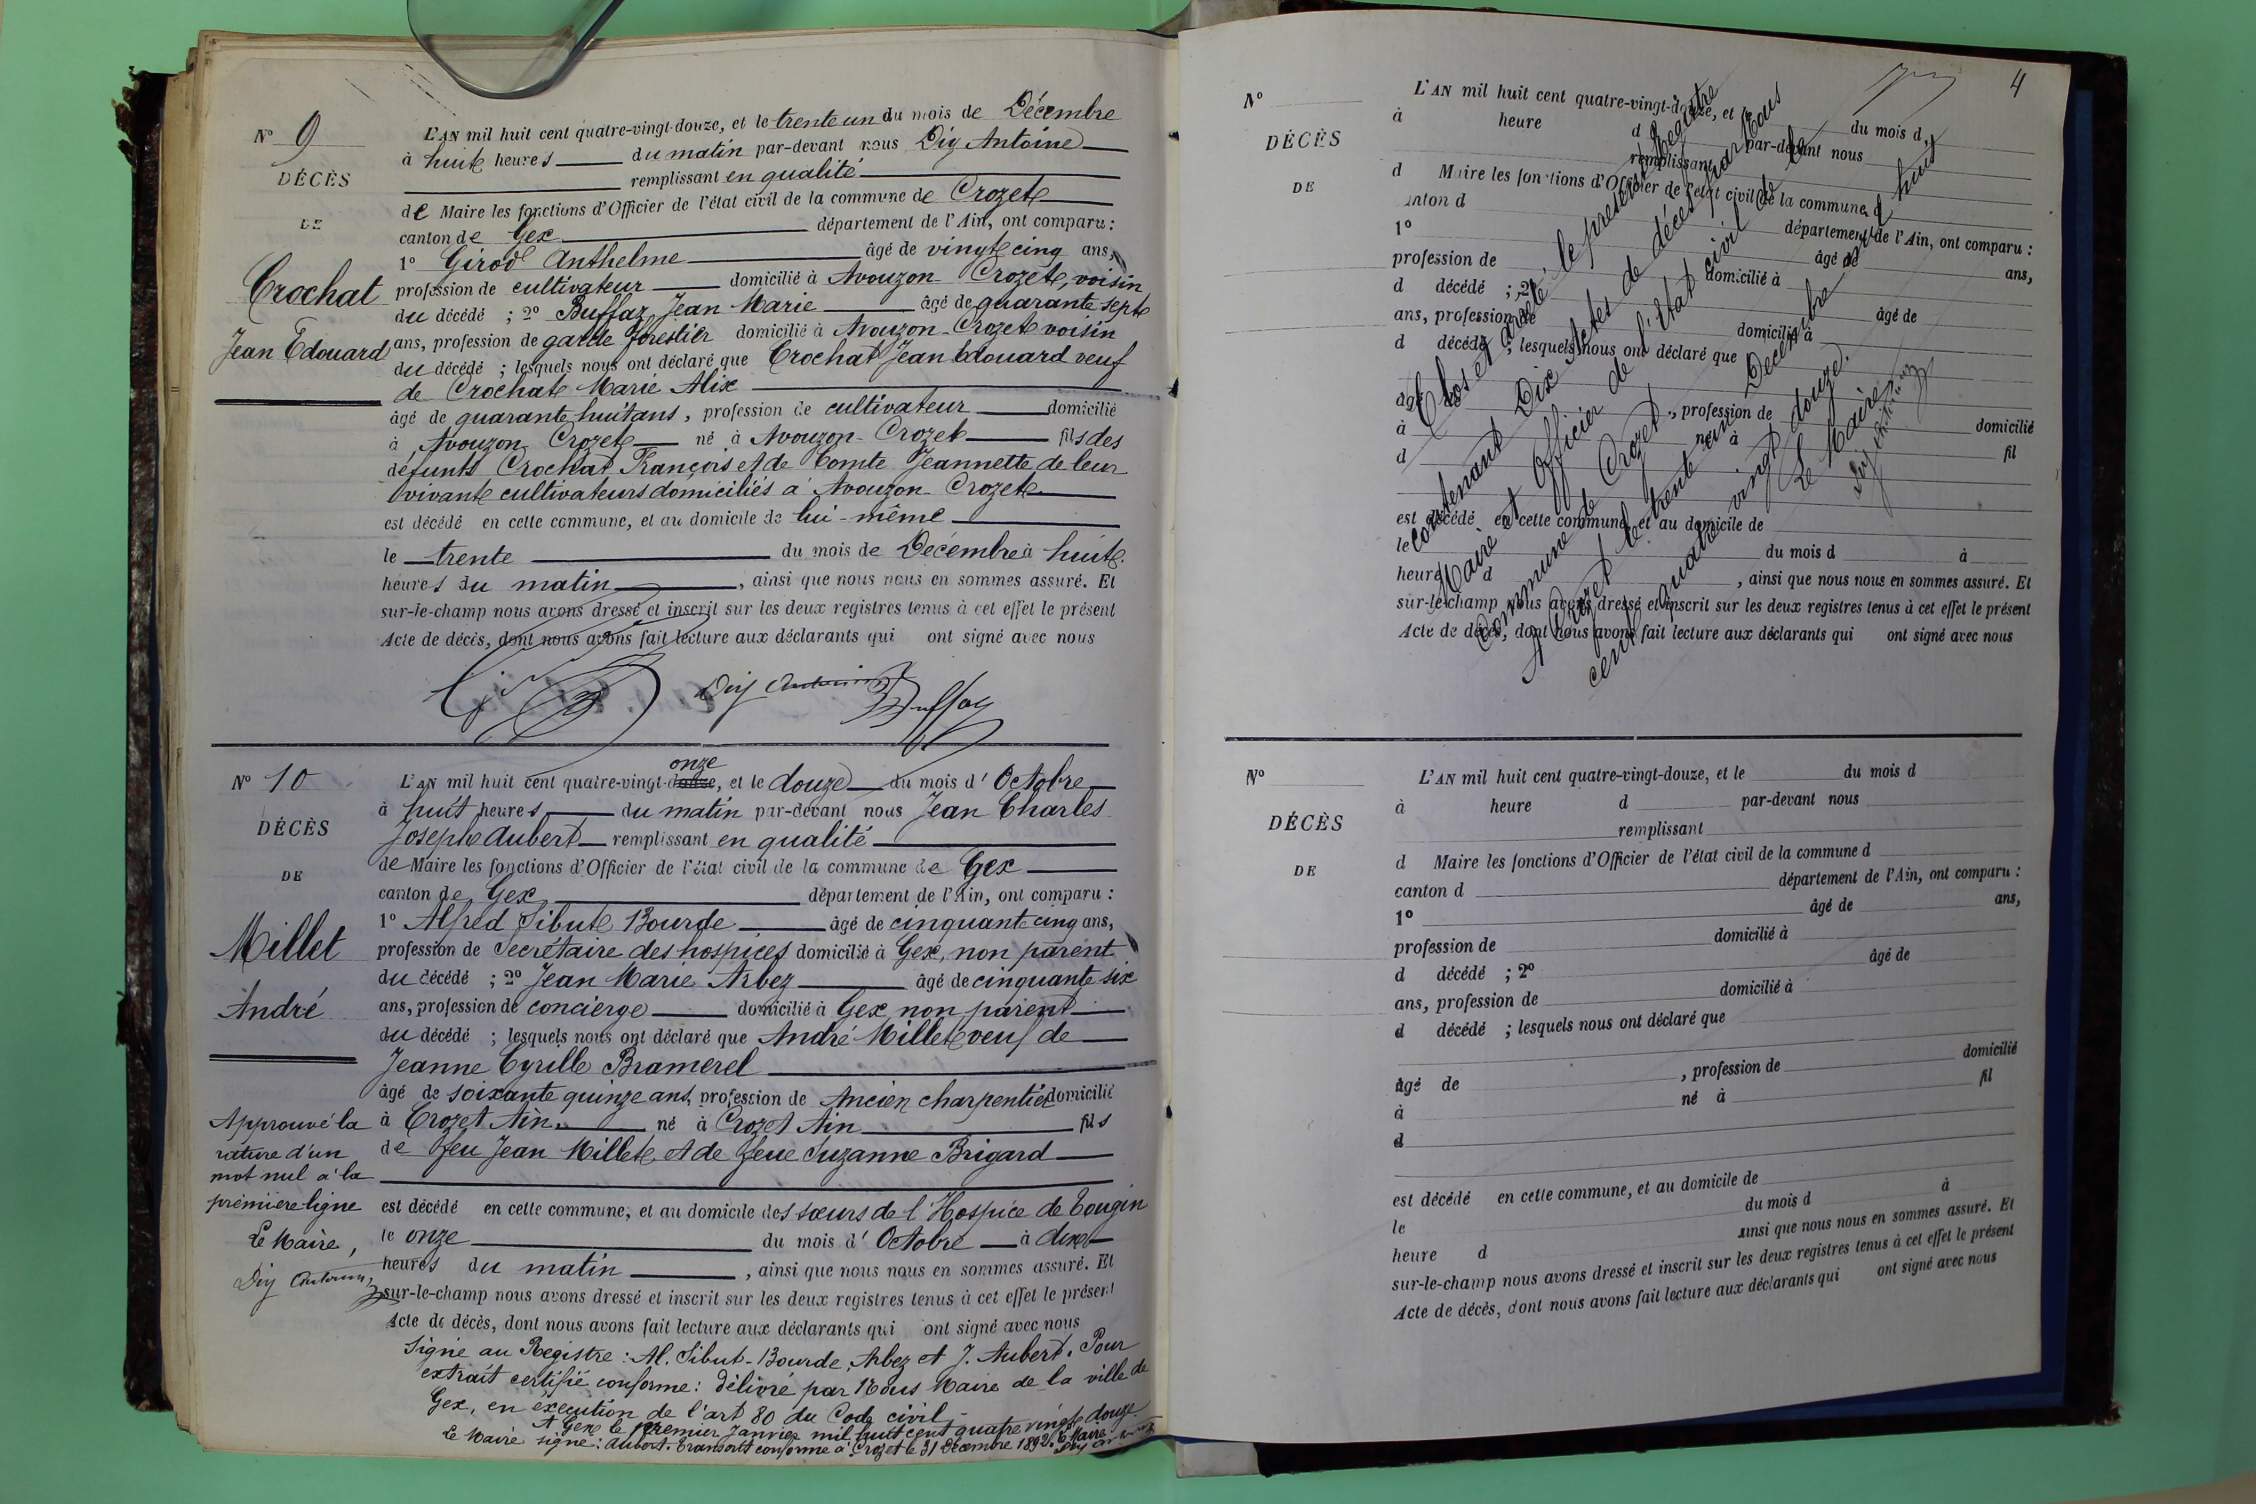 N° 9
DÉCÈS
DE
Crochat
Jean Edouard
L'AN mil huit cent quatre-vingt-douze, et le trente un du mois de Décembre
à huit heures du matin par-devant nous Diy Antoine
remplissant en qualité
de Maire les fonctions d'Officier de l'état civil de la commune de Crozet
canton de Gex département de l'Ain, ont comparu :
1° Girod Anthelme âgé de vingt cinq ans,
profession de cultivateur domicilié à Avouzon Crozet, voisin
du décédé ; 2° Buffaz Jean Marie âgé de quarante sept
ans, profession de garde forestier domicilié à Avouzon-Crozet voisin
du décédé ; lesquels nous ont déclaré que Crochat Jean Edouard veuf
de Crochat Marie Alix
âgé de quarante huit ans, profession de cultivateur domicilié
à Avouzon Crozet né à Avouzon-Crozet fils des
défunts Crochat François et de Comte Jeannette de leur
vivant cultivateurs domiciliés à Avouzon-Crozet
est décédé en cette commune, et au domicile de lui-même
le trente du mois de Décembre à huit
heures du matin, ainsi que nous nous en sommes assuré. Et
sur-le-champ nous avons dressé et inscrit sur les deux registres tenus à cet effet le présent
Acte de décès, dont nous avons fait lecture aux déclarants qui ont signé avec nous
Diy Antoine
Buffaz
N° 10
DÉCÈS
DE
Millet
André
Approuvé la
rature d'un
mot nul à la
première ligne
Le Maire,
Diy Antoine
onze
L'AN mil huit cent quatre-vingt-douze, et le douze du mois d'Octobre
à huit heures du matin par-devant nous Jean Charles
Joseph Aubert remplissant en qualité
de Maire les fonctions d'Officier de l'état civil de la commune de Gex
canton de Gex département de l'Ain, ont comparu :
1° Alfred Sibut Bourde âgé de cinquante cinq ans,
profession de Secrétaire des hospices domicilié à Gex, non parent
du décédé ; 2° Jean Marie Arbez âgé de cinquante six
ans, profession de concierge domicilié à Gex non parent
du décédé ; lesquels nous ont déclaré que André Millet veuf de
Jeanne Cyrille Bramerel
âgé de soixante quinze ans, profession de Ancien charpentier domicilié
à Crozet Ain. né à Crozet Ain fils
de feu Jean Millet et de feue Suzanne Brigard
est décédé en cette commune, et au domicile des sœurs de l'Hospice de Tougin
le onze du mois d'Octobre à dix
heures du matin, ainsi que nous nous en sommes assuré. Et
sur-le-champ nous avons dressé et inscrit sur les deux registres tenus à cet effet le présent
Acte de décès, dont nous avons fait lecture aux déclarants qui ont signé avec nous
Signé au Registre : Al. Sibut-Bourde, Arbez et J. Aubert. Pour
extrait certifié conforme : délivré par Nous Maire de la ville de
Gex, en exécution de l'art 80 du Code civil.
A Gex le premier Janvier mil huit cent quatre vingt douze
Le Maire signé : Aubert. Transcrit conforme à Crozet le 31 Décembre 1892. Le Maire
4
N°
DÉCÈS
DE
L'AN mil huit cent quatre-vingt-douze, et du mois d
à heure d par-devant nous
remplissant
d Maire les fonctions d'Officier de l'état civil de la commune d
canton d
département de l'Ain, ont comparu :
1° âgé de ans,
profession de domicilié à
d décédé ; 2° âgé de
ans, profession de domicilié à
d décédé ; lesquels nous ont déclaré que
âgé de , profession de domicilié
à né à fil
d
est décédé en cette commune, et au domicile de
le du mois d à
heure d , ainsi que nous nous en sommes assuré. Et
sur-le-champ nous avons dressé et inscrit sur les deux registres tenus à cet effet le présent
Acte de décès, dont nous avons fait lecture aux déclarants qui ont signé avec nous
Clos et arrêté le présent Registre
contenant Dix Actes de décès par Nous
Maire et Officier de l'Etat civil de la
Commune de Crozet.
A Crozet le trente un Décembre mil huit
cent quatre vingt douze.
Le Maire
N°
DÉCÈS
DE
L'AN mil huit cent quatre-vingt-douze, et le du mois d
à heure d par-devant nous
remplissant
d Maire les fonctions d'Officier de l'état civil de la commune d
canton d département de l'Ain, ont comparu :
1° âgé de ans,
profession de domicilié à
d décédé ; 2° âgé de
ans, profession de domicilié à
d décédé ; lesquels nous ont déclaré que
âgé de , profession de domicilié
à né à fil
d
est décédé en cette commune, et au domicile de
le du mois d à
heure d ainsi que nous nous en sommes assuré. Et
sur-le-champ nous avons dressé et inscrit sur les deux registres tenus à cet effet le présent
Acte de décès, dont nous avons fait lecture aux déclarants qui ont signé avec nous